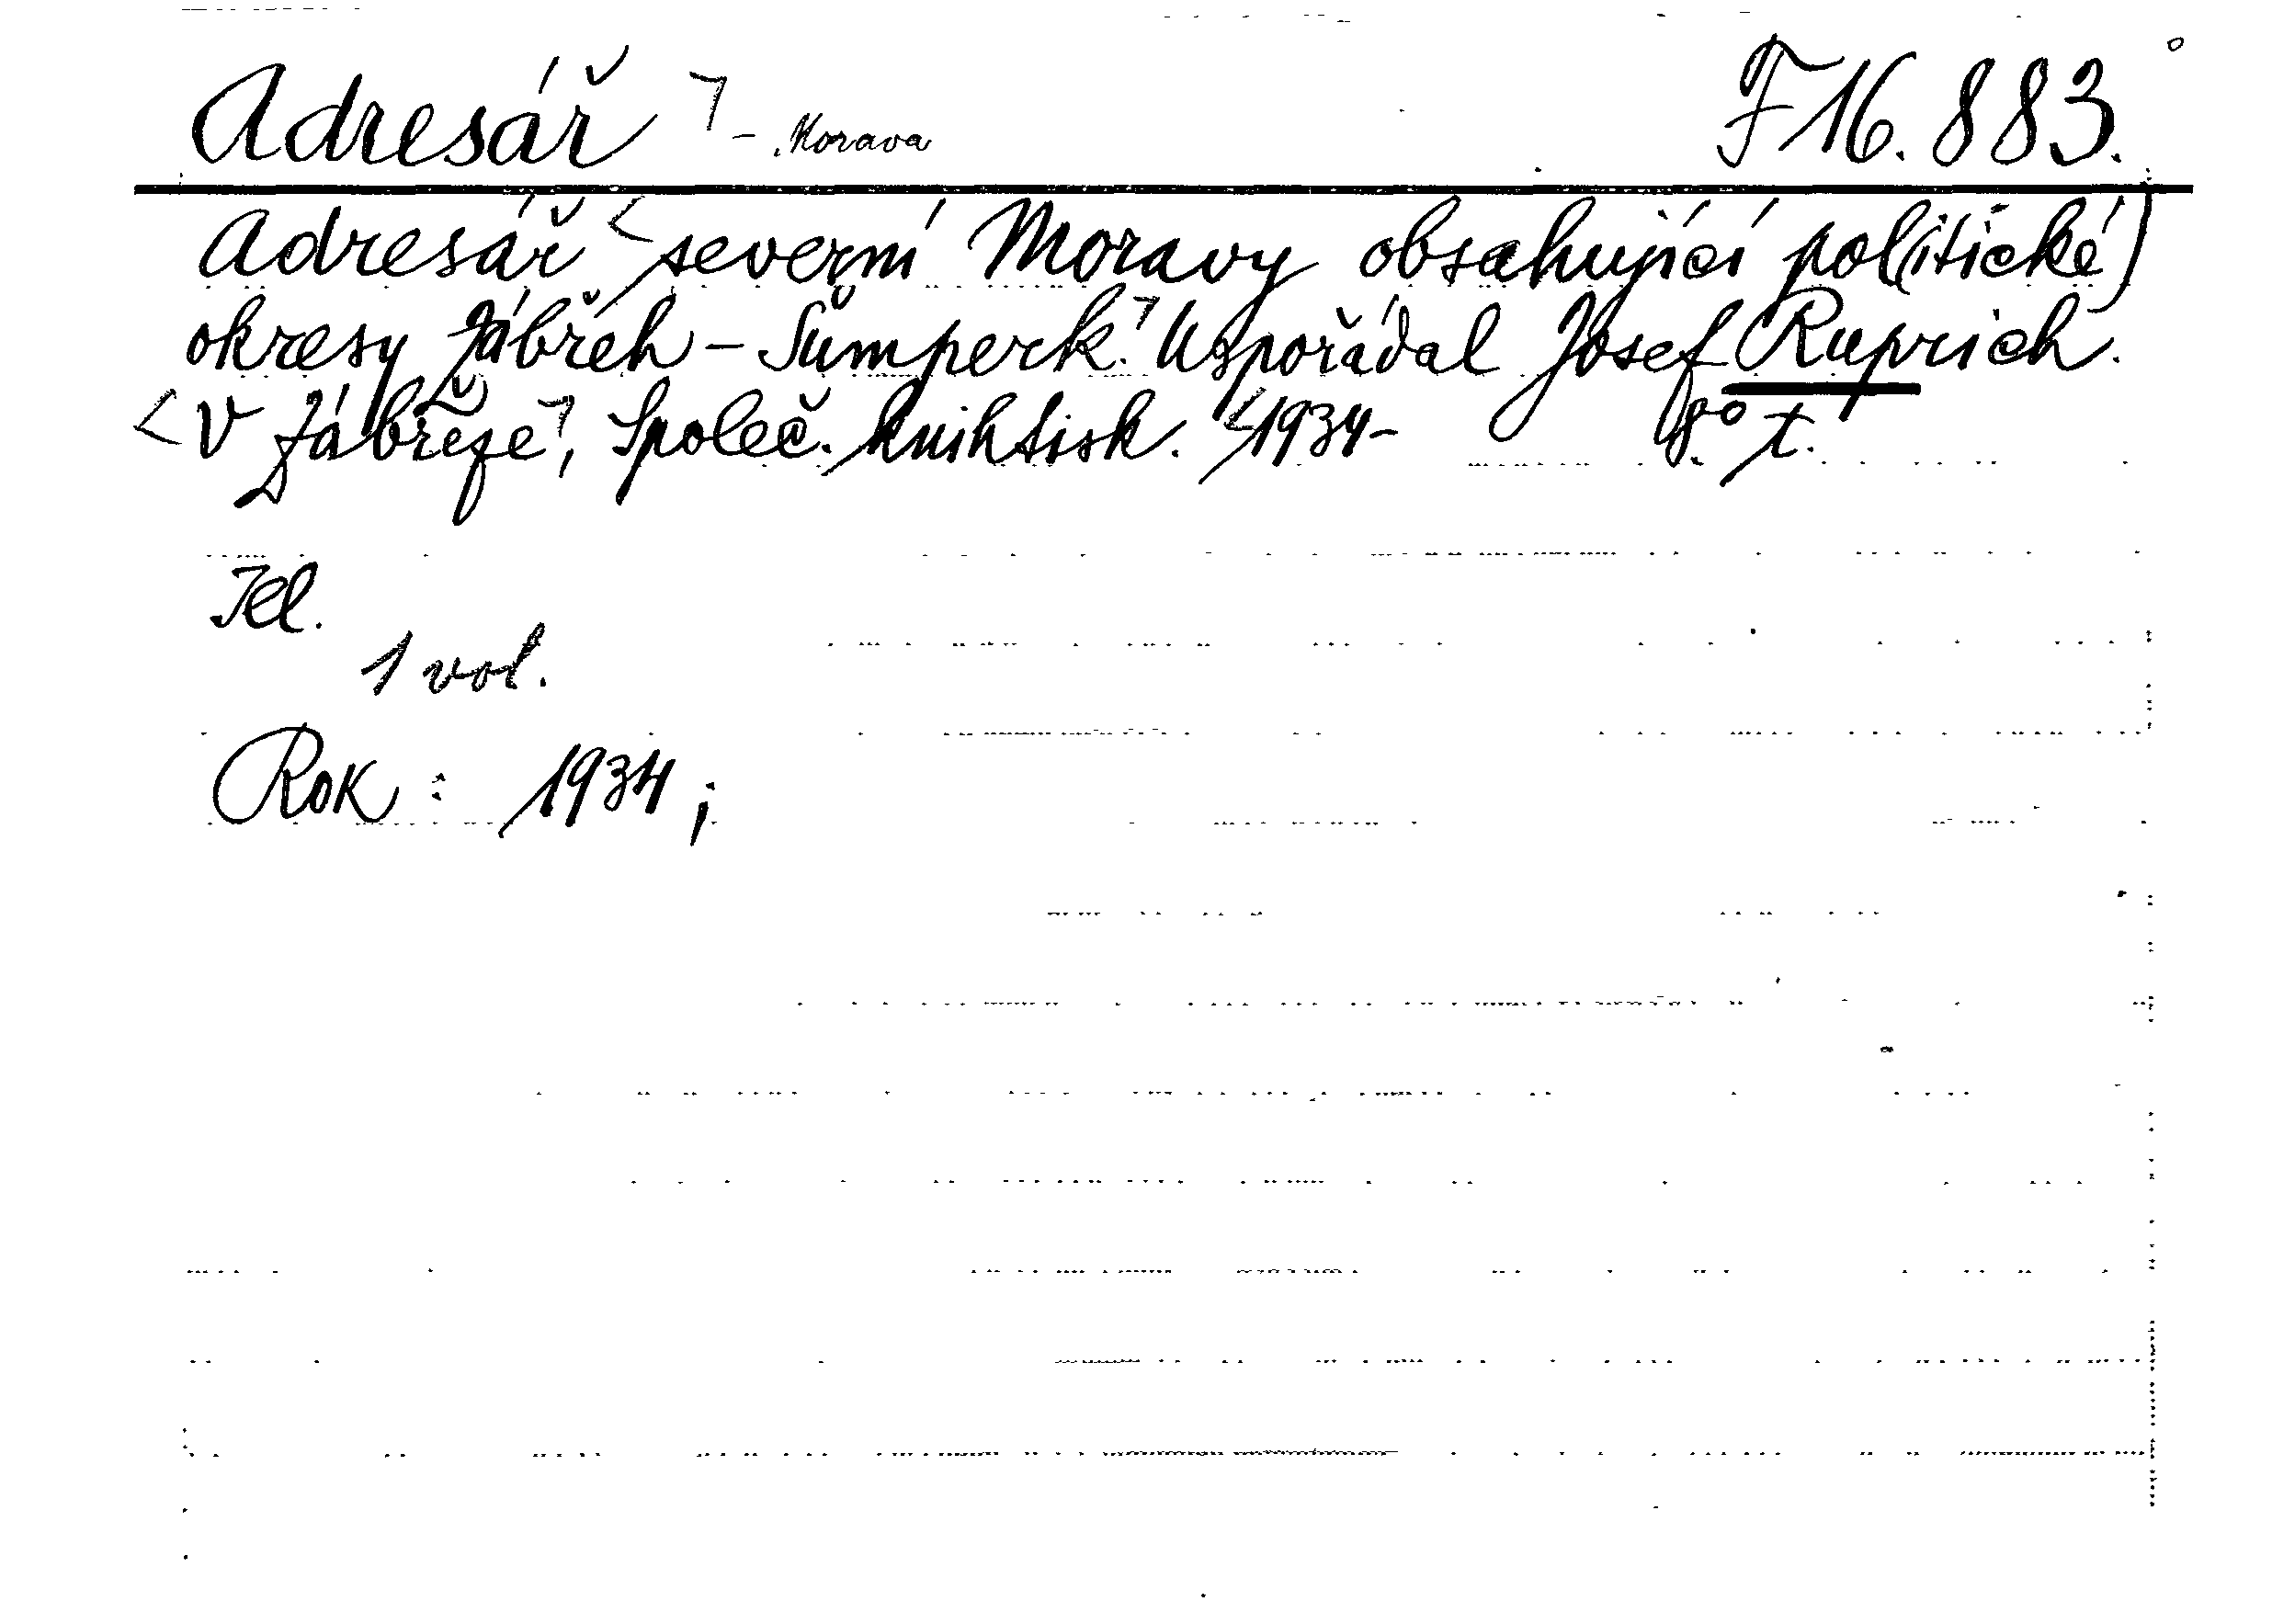 Adresář - Morava F 16.883.
Adresář severní Moravy obsahující politické
okresy Zábřeh - Šumperk. Uspořádal Josef Ruprich.
V Zábřeze, Společ. knihtisk. 1934- 8° t.
Jel.
1 vol.
Rok: 1934;